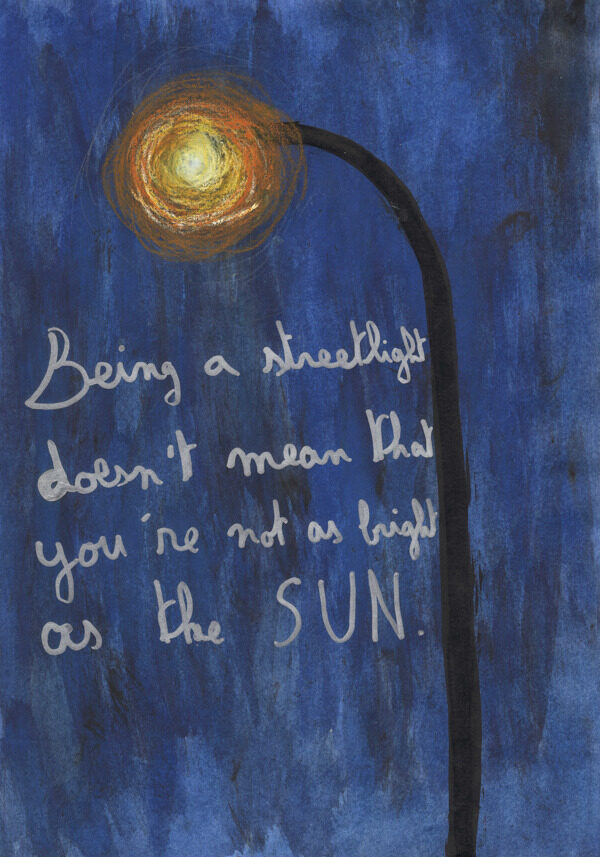 Being a streetlight
doesn't mean that
you're not as bright
as the SUN.